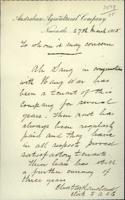 Australian Agricultural Company
Newcastle 27th March 1885
To whom it may concern
Ah Sang in conjunction
with Wang War has
been a tenant of this
Company for several
years. Their rent has
always been regularly
paid and they have
in all respects proved
satisfactory tenants
Their lease has still
a further currency of
three years